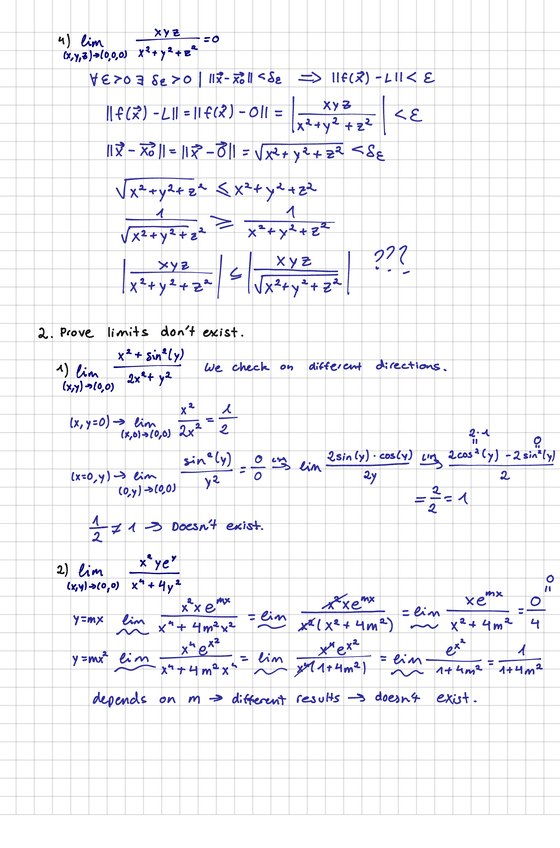 4) lim (x,y,z)→(0,0,0) xyz / x²+y²+z² = 0
∀ε>0 ∃ δε>0 | ||x⃗-x⃗₀||<δε ⟹ ||f(x⃗)-L||<ε
||f(x⃗)-L||=||f(x⃗)-0||= |xyz / x²+y²+z²| <ε
||x⃗-x⃗₀||=||x⃗-0⃗||=√x²+y²+z² <δε
√x²+y²+z² ≤ x²+y²+z²
1 / √x²+y²+z² ≥ 1 / x²+y²+z²
|xyz / x²+y²+z²| ≤ |xyz / √x²+y²+z²| ???
2. Prove limits don't exist.
1) lim (x,y)→(0,0) x²+sin²(y) / 2x²+y² We check on different directions.
(x,y=0)→ lim (x,0)→(0,0) x² / 2x² = 1/2
(x=0,y)→ lim (0,y)→(0,0) sin²(y) / y² = 0/0 → lim 2sin(y)·cos(y) / 2y → 2cos²(y)-2sin²(y) / 2
2·1 0
= 2/2 = 1
1/2 ≠ 1 → Doesn't exist.
2) lim (x,y)→(0,0) x²ye^y / x⁴+4y²
y=mx lim x²xe^mx / x⁴+4m²x² = lim x²xe^mx / x²(x²+4m²) = lim xe^mx / x²+4m² = 0/4 0
y=mx² lim x⁴e^x² / x⁴+4m²x⁴ = lim x⁴e^x² / x⁴(1+4m²) = lim e^x² / 1+4m² = 1 / 1+4m²
depends on m → different results → doesn't exist.